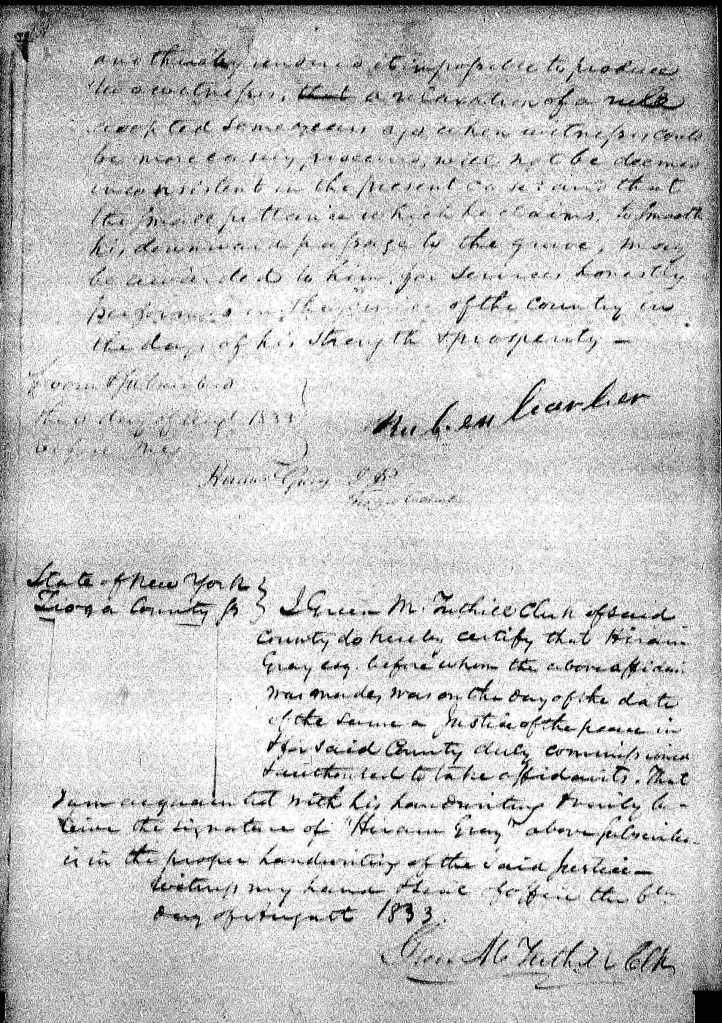 and thereby renders it impossible to produce
two witnesses, that a relaxation of a rule
adopted some years ago when witnesses could
be more easily procured, will not be deemed
inconsistent in the present case: and that
the small pittance which he claims, to smooth
his downward passage to the grave, may
be awarded to him, for services honestly
performed in the service of the country in
the days of his strength & prosperity —
Sworn & subscribed
the day of August 1833
before me
Ruben Carber
Hiram Gray J. P.
State of New York
Tioga County ss
I Green M. Tuthill Clerk of said
County do hereby certify that Hiram
Gray esq. before whom the above affidavit
was made, was on the day of the date
of the same a Justice of the peace in
& for said County duly commissioned
& authorised to take affidavits. That
I am acquainted with his handwriting & verily be-
lieve the signature of "Hiram Gray" above subscribed
is in the proper handwriting of the said Justice —
Witness my hand & seal of office the 6th
day of August 1833.
Green M Tuthill Clk